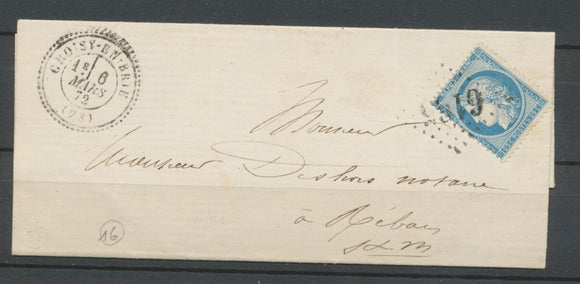 CHOISY-EN-BRIE
1E
6
MARS
72
(73)
Monsieur
Monsieur Desbois notaire
à Rebais
S & M
16